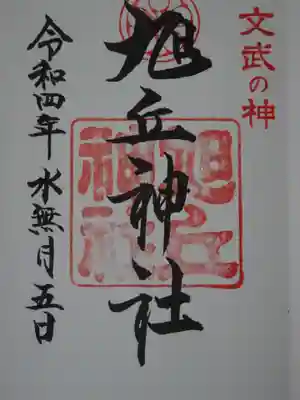 文武の神
旭丘神社
旭丘
神社
令和四年 水無月五日